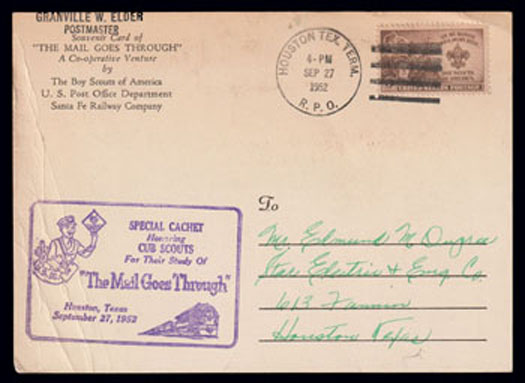 GRANVILLE W. ELDER
POSTMASTER
Souvenir Card of
"THE MAIL GOES THROUGH"
A Co-operative Venture
by
The Boy Scouts of America
U. S. Post Office Department
Santa Fe Railway Company
HOUSTON TEX. TERM.
4-PM
SEP 27
1952
R. P. O.
SPECIAL CACHET
Honoring
CUB SCOUTS
For Their Study Of
"The Mail Goes Through"
Houston, Texas
September 27, 1952
To
Mr. Edmund M
Electric & Eng Co.
613 Fannin
Houston Texas